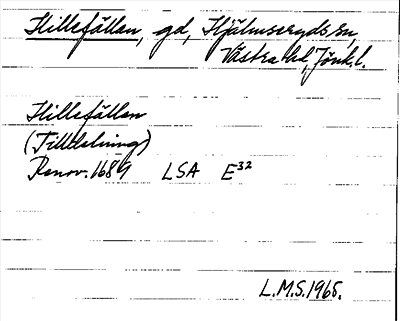 Hillefällan, gd, Hjälmseryds sn,
Västra hd, Jönk.l.
Hillefällan
(Tilldelning)
Renov. 1689 LSA E³²
L.M.S. 1965.